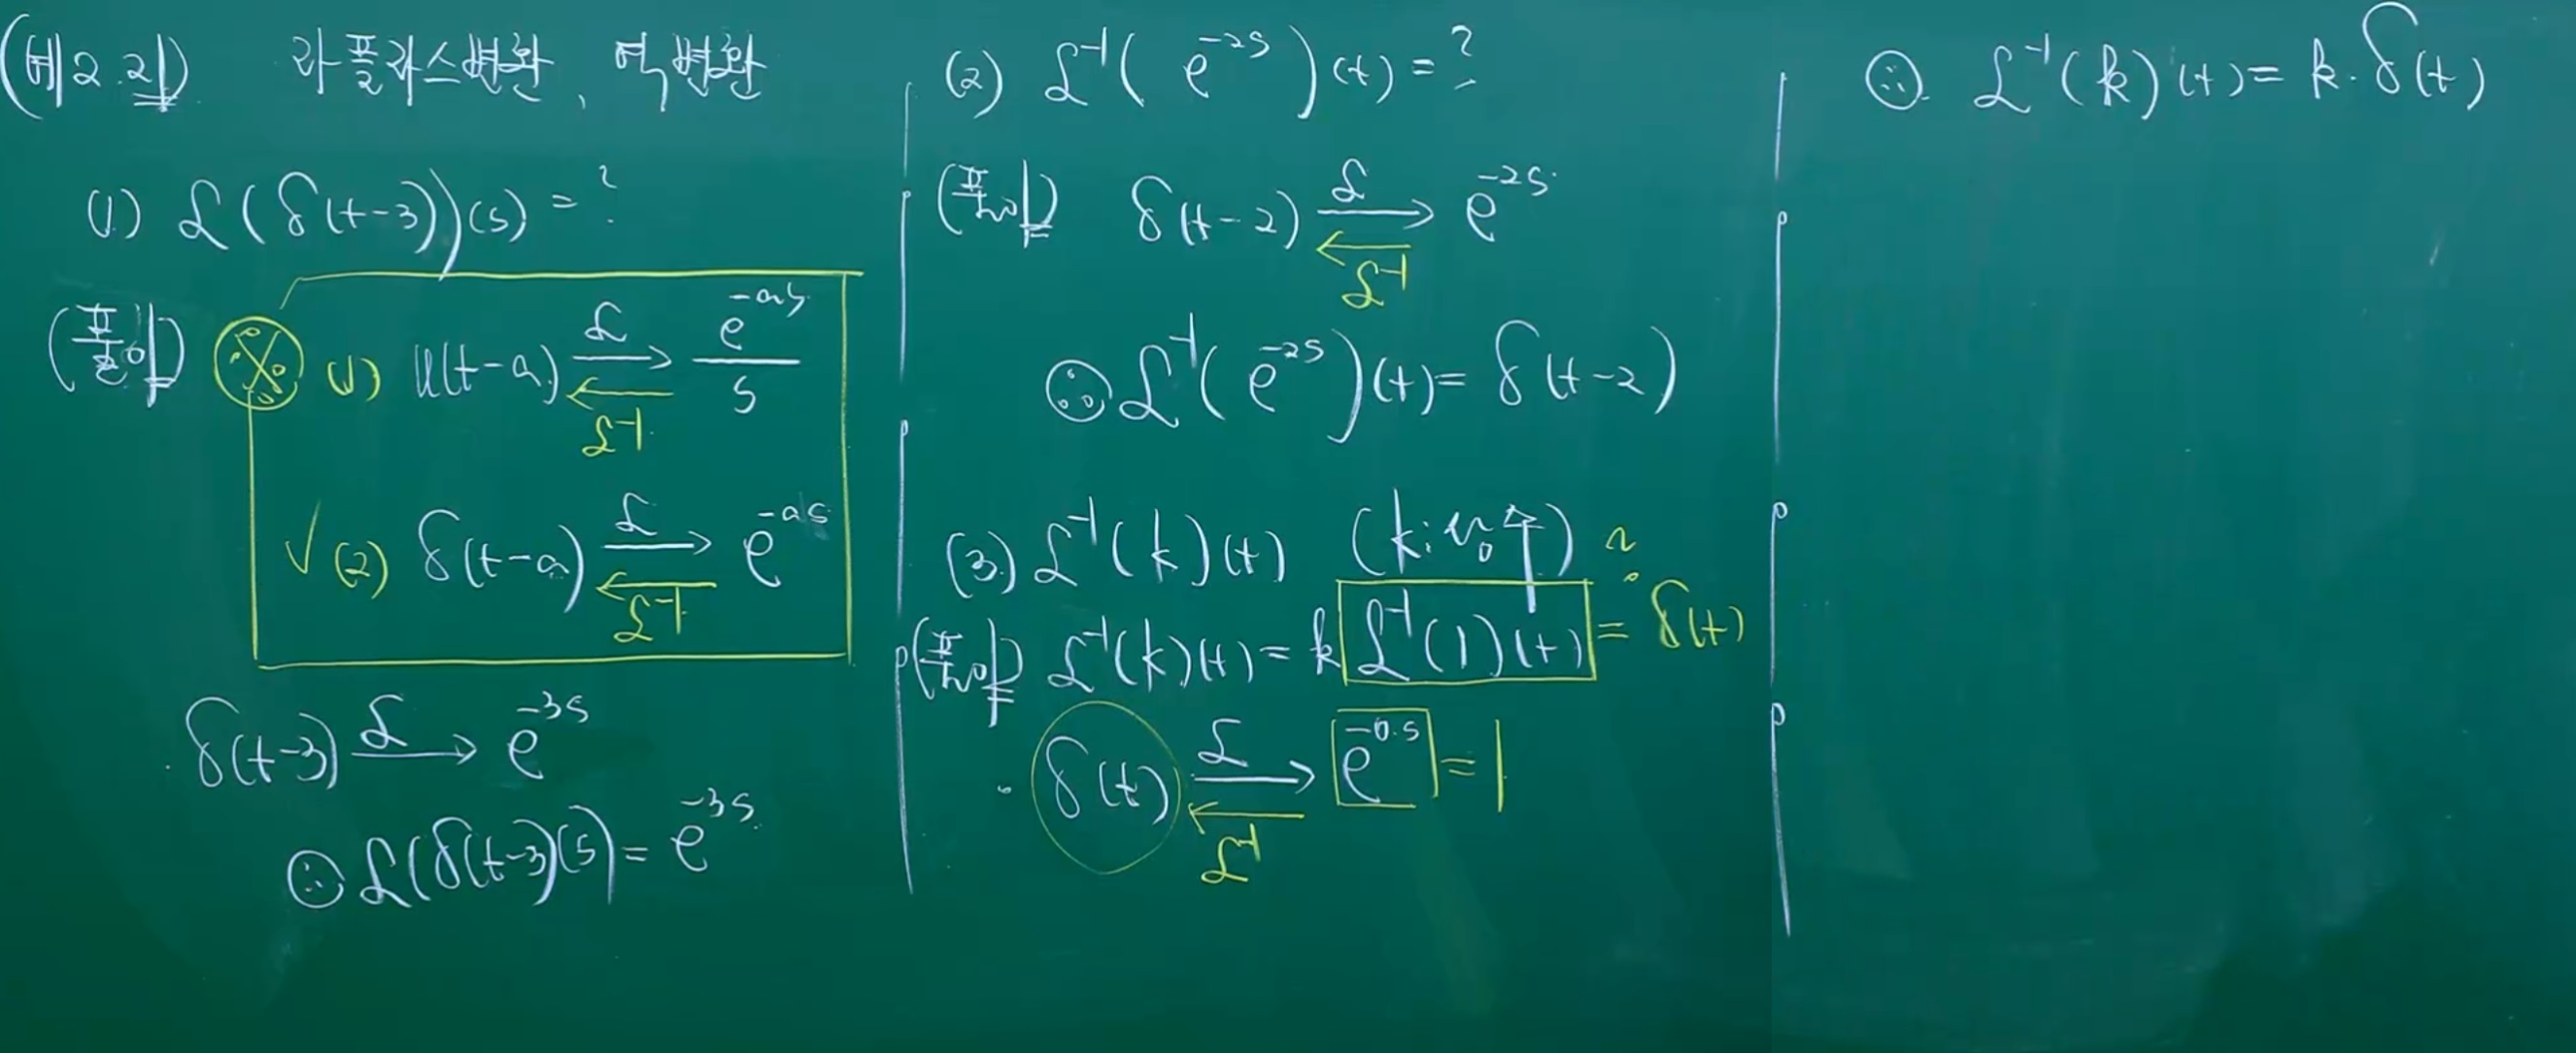 (예 2.2) 라플라스변환, 역변환
(1) ℒ(δ(t-3))(s) = ?
(풀이) ※ (1) u(t-a) ⟶ℒ e^{-as}/s
⟵ℒ⁻¹
✓(2) δ(t-a) ⟶ℒ e^{-as}
⟵ℒ⁻¹
δ(t-3) ⟶ℒ e^{-3s}
∴ ℒ(δ(t-3)(s) = e^{-3s}
(2) ℒ⁻¹(e^{-2s})(t) = ?
(풀이) δ(t-2) ⟶ℒ e^{-2s}
⟵ℒ⁻¹
∴ ℒ⁻¹(e^{-2s})(t) = δ(t-2)
(3) ℒ⁻¹(k)(t) (k: 상수) ?
(풀이) ℒ⁻¹(k)(t) = k ℒ⁻¹(1)(t) = δ(t)
δ(t) ⟶ℒ e^{-0·s} = 1
⟵ℒ⁻¹
∴ ℒ⁻¹(k)(t) = k·δ(t)